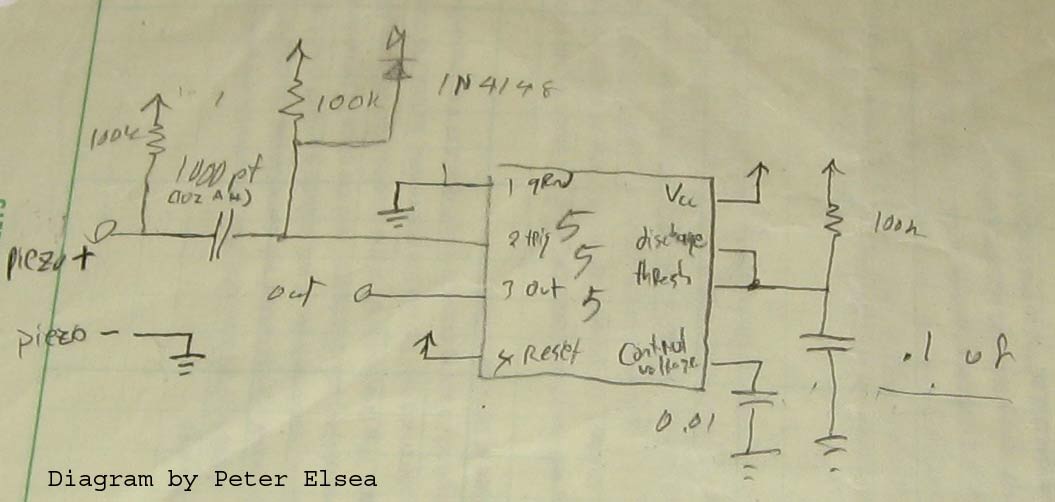 1N4148
100k
100k
1000 pf
piezo +
piezo -
out
1 grnd
2 trig
3 out
4 Reset
555
Vcc
discharge
thresh
Control
voltage
100k
.1 uf
0.01
Diagram by Peter Elsea